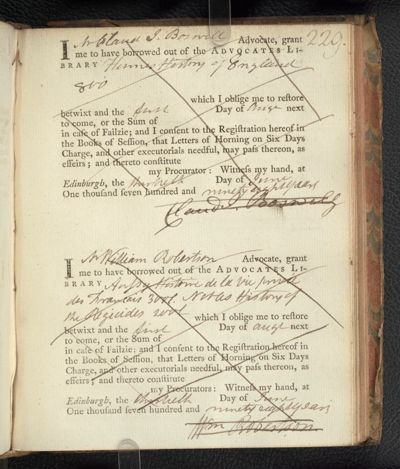 229.
I Mr Claud I. Boswell Advocate, grant
me to have borrowed out of the ADVOCATES LI-
BRARY Humes History of England
8vo
which I oblige me to restore
betwixt and the first Day of Augt next
to come, or the Sum of
in case of Failzie; and I consent to the Registration hereof in
the Books of Session, that Letters of Horning on Six Days
Charge, and other executorials needful, may pass thereon, as
effeirs; and thereto constitute
my Procurator: Witness my hand, at
Edinburgh, the thirtieth Day of June
One thousand seven hundred and ninety eight years
Claud Boswell
I Mr William Robertson Advocate, grant
me to have borrowed out of the ADVOCATES LI-
BRARY Histoire de la vie privée
des Français 3 vol. Nobles History of
the Regicides 2 vol
which I oblige me to restore
betwixt and the first Day of augt next
to come, or the Sum of
in case of Failzie; and I consent to the Registration hereof in
the Books of Session, that Letters of Horning on Six Days
Charge, and other executorials needful, may pass thereon, as
effeirs; and thereto constitute
my Procurators: Witness my hand, at
Edinburgh, the thirtieth Day of June
One thousand seven hundred and ninety eight years
Wm Robertson